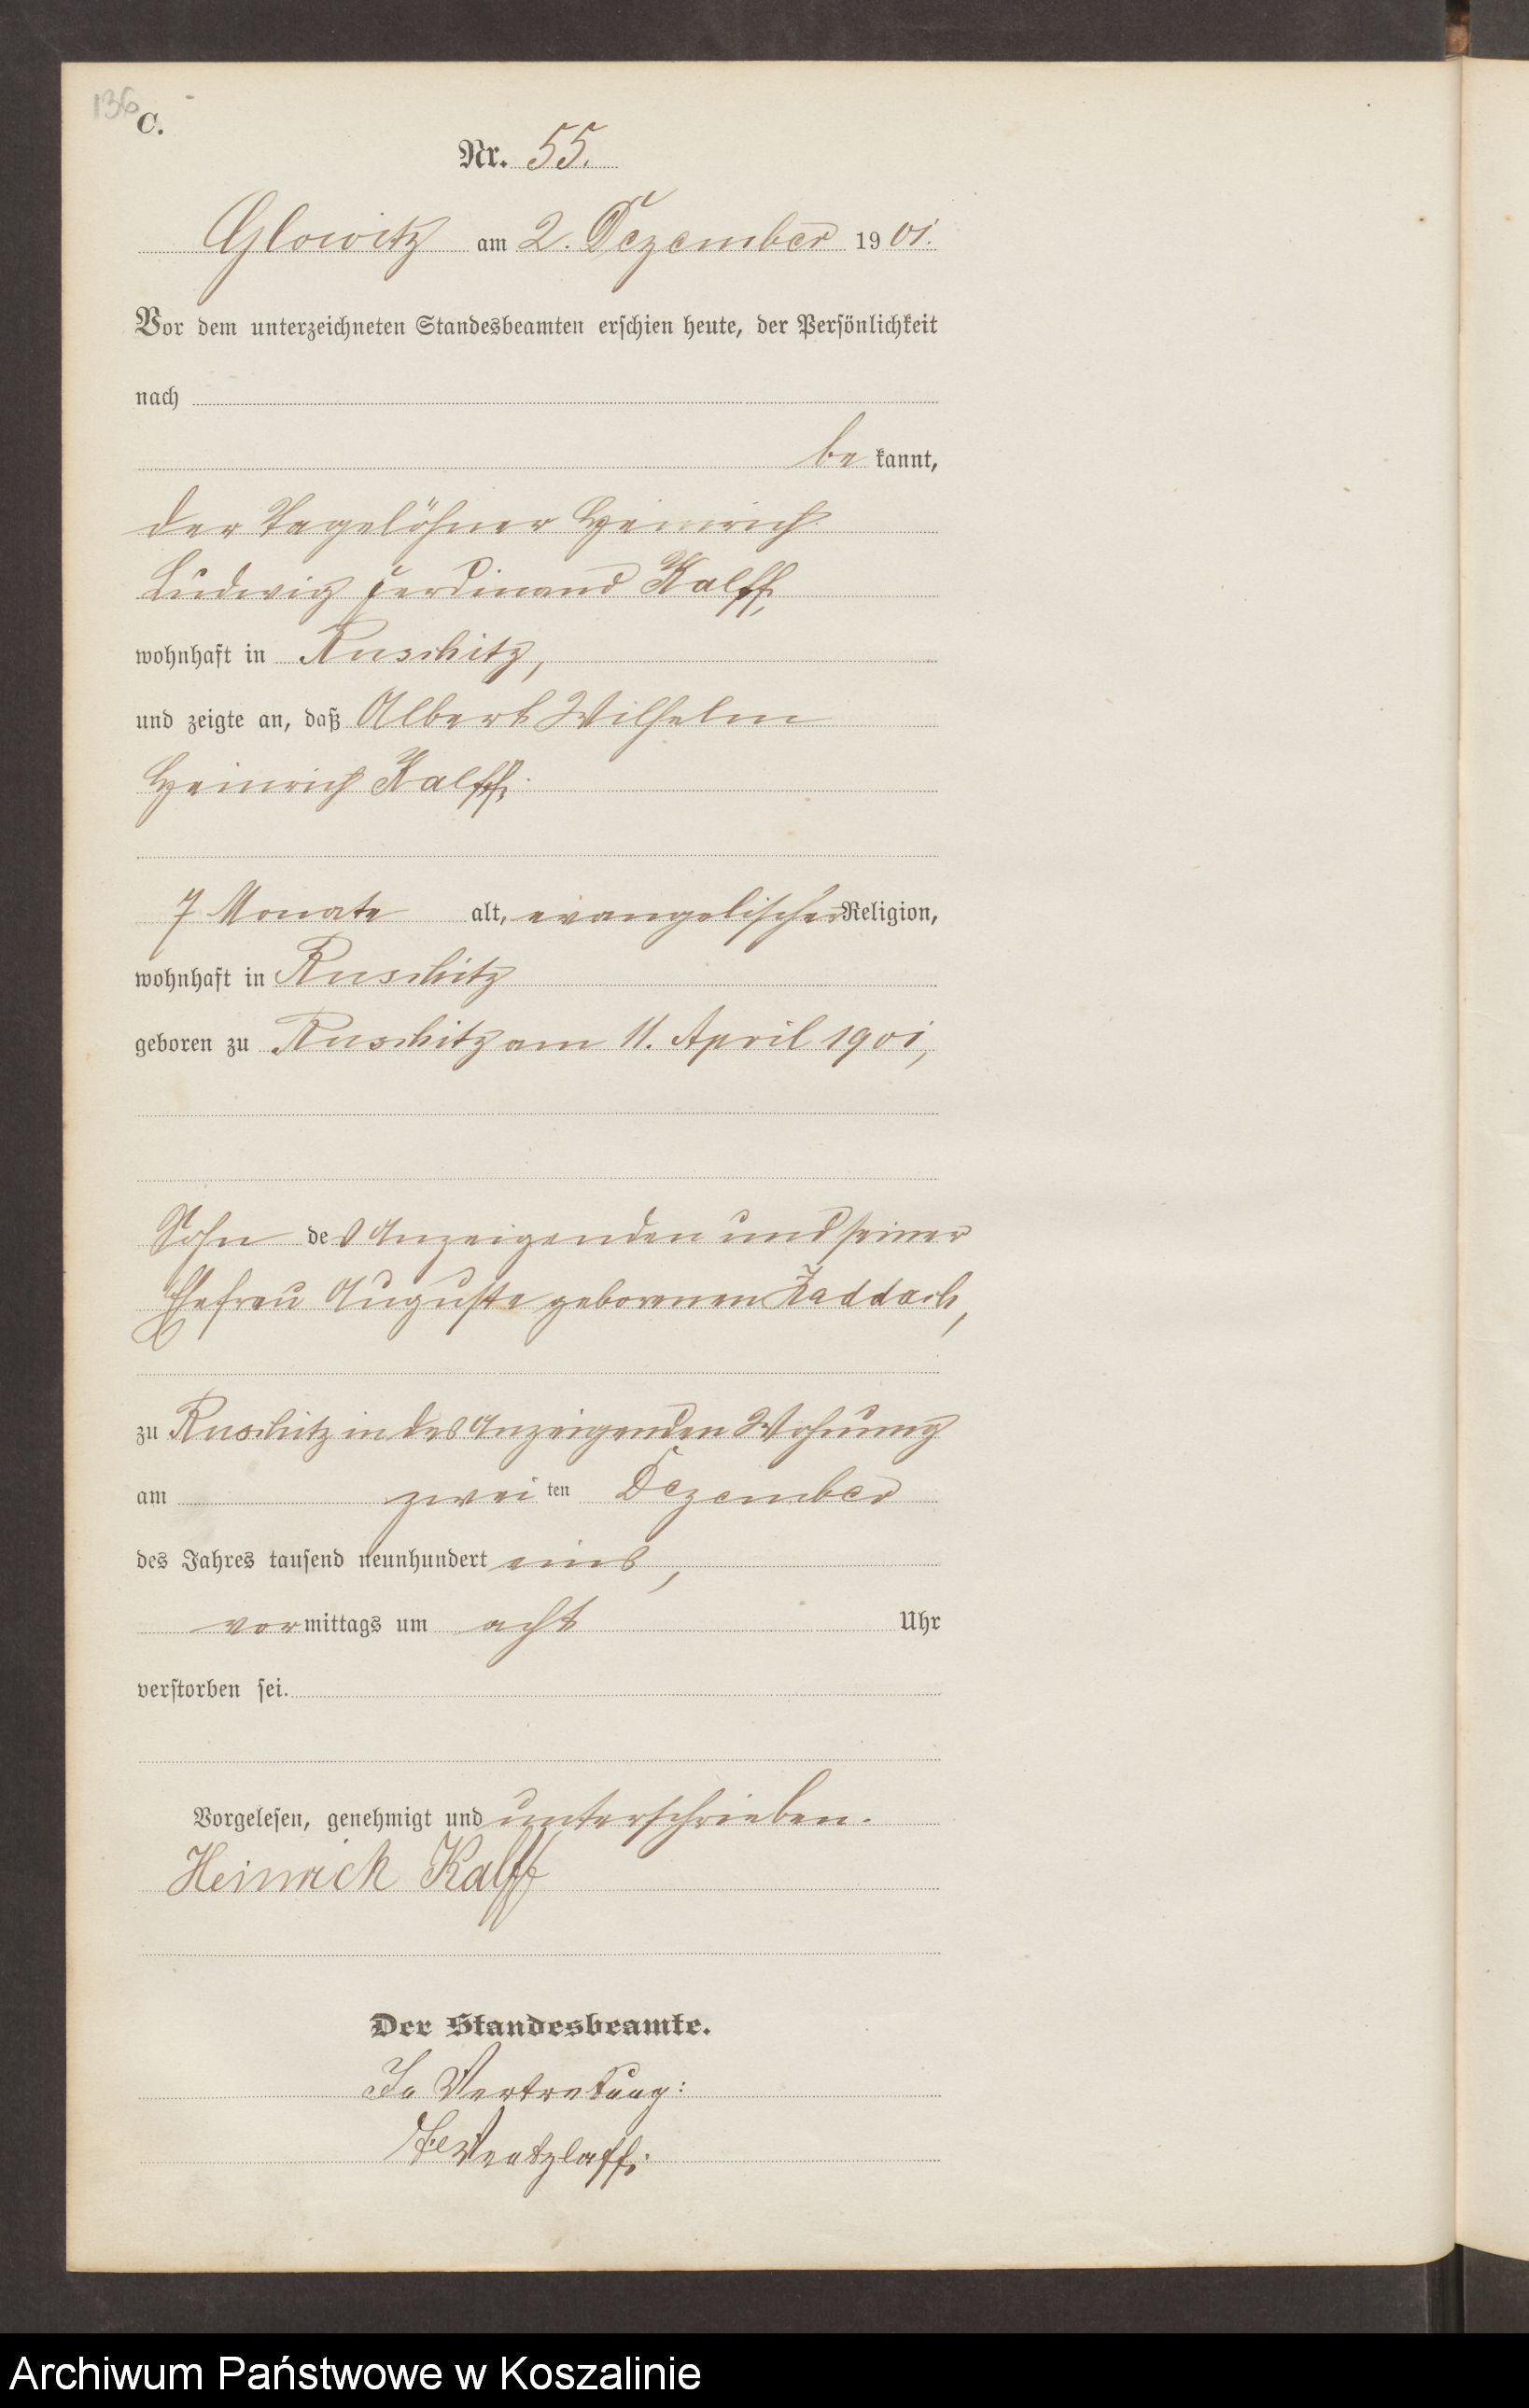 136
C.
Nr. 55.
Glowitz am 2. Dezember 1901.
Vor dem unterzeichneten Standesbeamten erschien heute, der Persönlichkeit
nach
be kannt,
der Tagelöhner Heinrich
Ludwig Ferdinand Kalff,
wohnhaft in Ruschitz,
und zeigte an, daß Albert Wilhelm
Heinrich Kalff,
7 Monate alt, evangelischer Religion,
wohnhaft in Ruschitz
geboren zu Ruschitz am 11. April 1901,
Sohn des Anzeigenden und seiner
Ehefrau Auguste geborenen Zaddach,
zu Ruschitz in des Anzeigenden Wohnung
am zwei ten Dezember
des Jahres tausend neunhundert eins,
vor mittags um acht Uhr
verstorben sei.
Vorgelesen, genehmigt und unterschrieben.
Heinrich Kalff
Der Standesbeamte.
In Vertretung:
Wentzlaff.
Archiwum Państwowe w Koszalinie